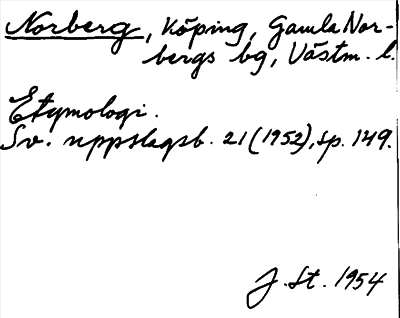 Norberg, köping, Gamla Nor-
bergs bg, Västm. l.
Etymologi.
Sv. uppslagsb. 21 (1952), sp. 149.
J. St. 1954